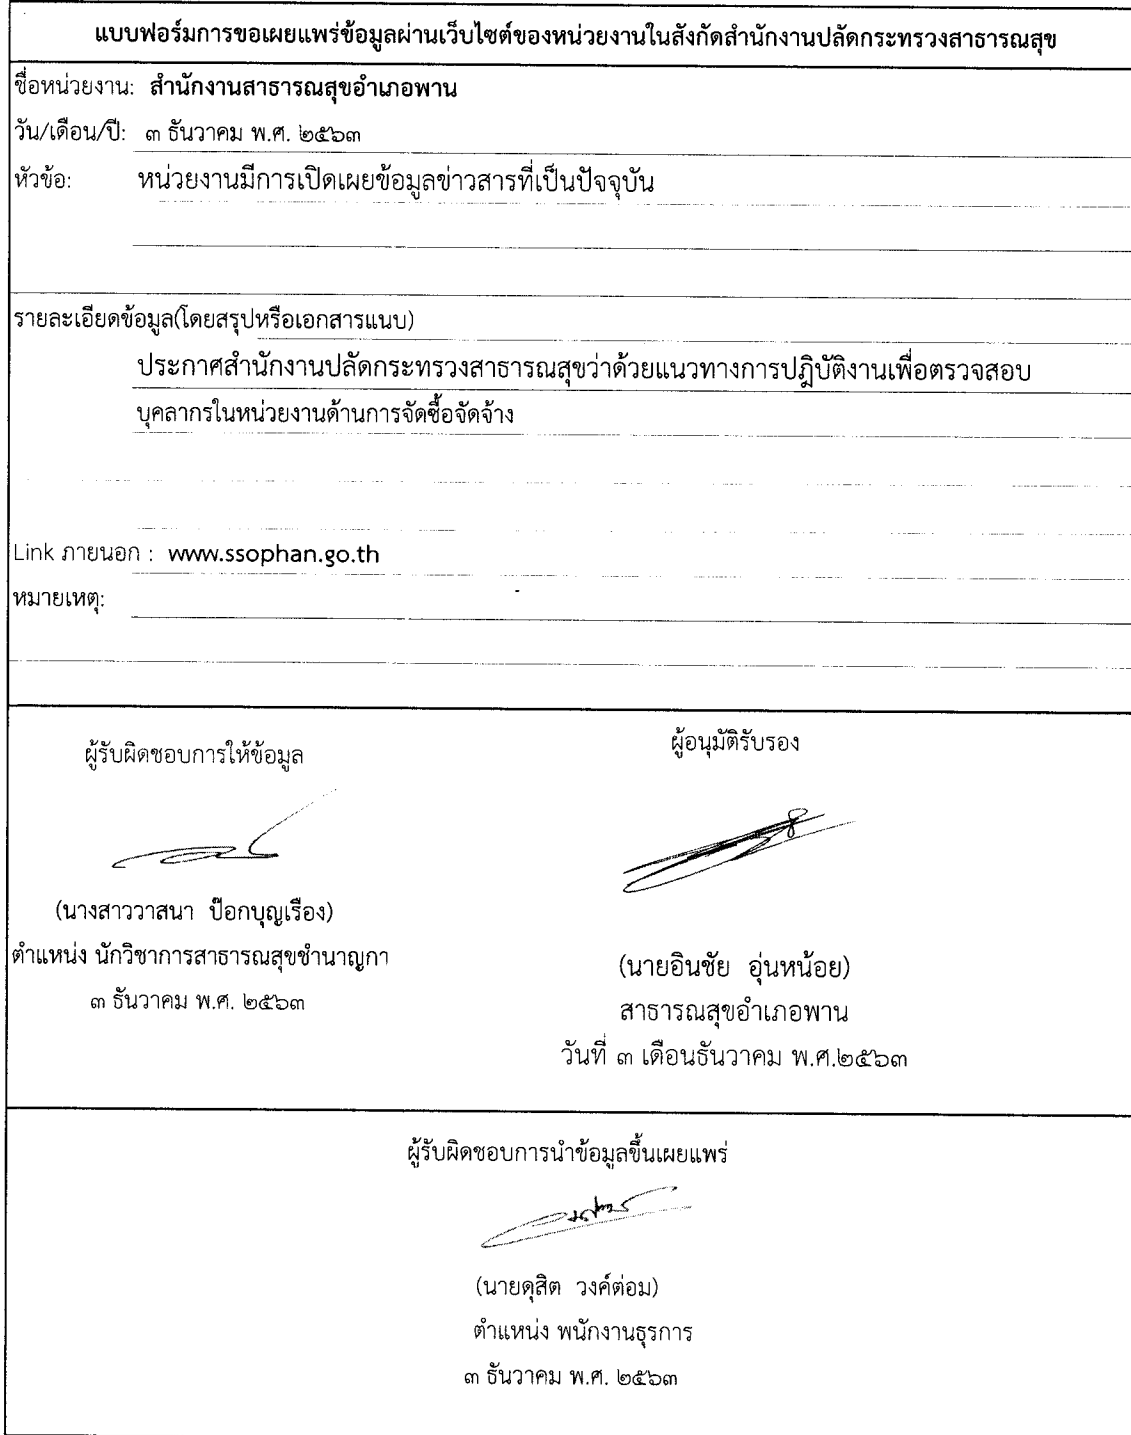 แบบฟอร์มการขอเผยแพร่ข้อมูลผ่านเว็บไซต์ของหน่วยงานในสังกัดสำนักงานปลัดกระทรวงสาธารณสุข
ชื่อหน่วยงาน: สำนักงานสาธารณสุขอำเภอพาน
วัน/เดือน/ปี: ๓ ธันวาคม พ.ศ. ๒๕๖๓
หัวข้อ: หน่วยงานมีการเปิดเผยข้อมูลข่าวสารที่เป็นปัจจุบัน
รายละเอียดข้อมูล(โดยสรุปหรือเอกสารแนบ)
ประกาศสำนักงานปลัดกระทรวงสาธารณสุขว่าด้วยแนวทางการปฏิบัติงานเพื่อตรวจสอบ
บุคลากรในหน่วยงานด้านการจัดซื้อจัดจ้าง
Link ภายนอก : www.ssophan.go.th
หมายเหตุ: -
ผู้รับผิดชอบการให้ข้อมูล
(นางสาววาสนา ป๊อกบุญเรือง)
ตำแหน่ง นักวิชาการสาธารณสุขชำนาญกา
๓ ธันวาคม พ.ศ. ๒๕๖๓
ผู้อนุมัติรับรอง
(นายอินชัย อุ่นหน้อย)
สาธารณสุขอำเภอพาน
วันที่ ๓ เดือนธันวาคม พ.ศ.๒๕๖๓
ผู้รับผิดชอบการนำข้อมูลขึ้นเผยแพร่
(นายดุสิต วงค์ต่อม)
ตำแหน่ง พนักงานธุรการ
๓ ธันวาคม พ.ศ. ๒๕๖๓